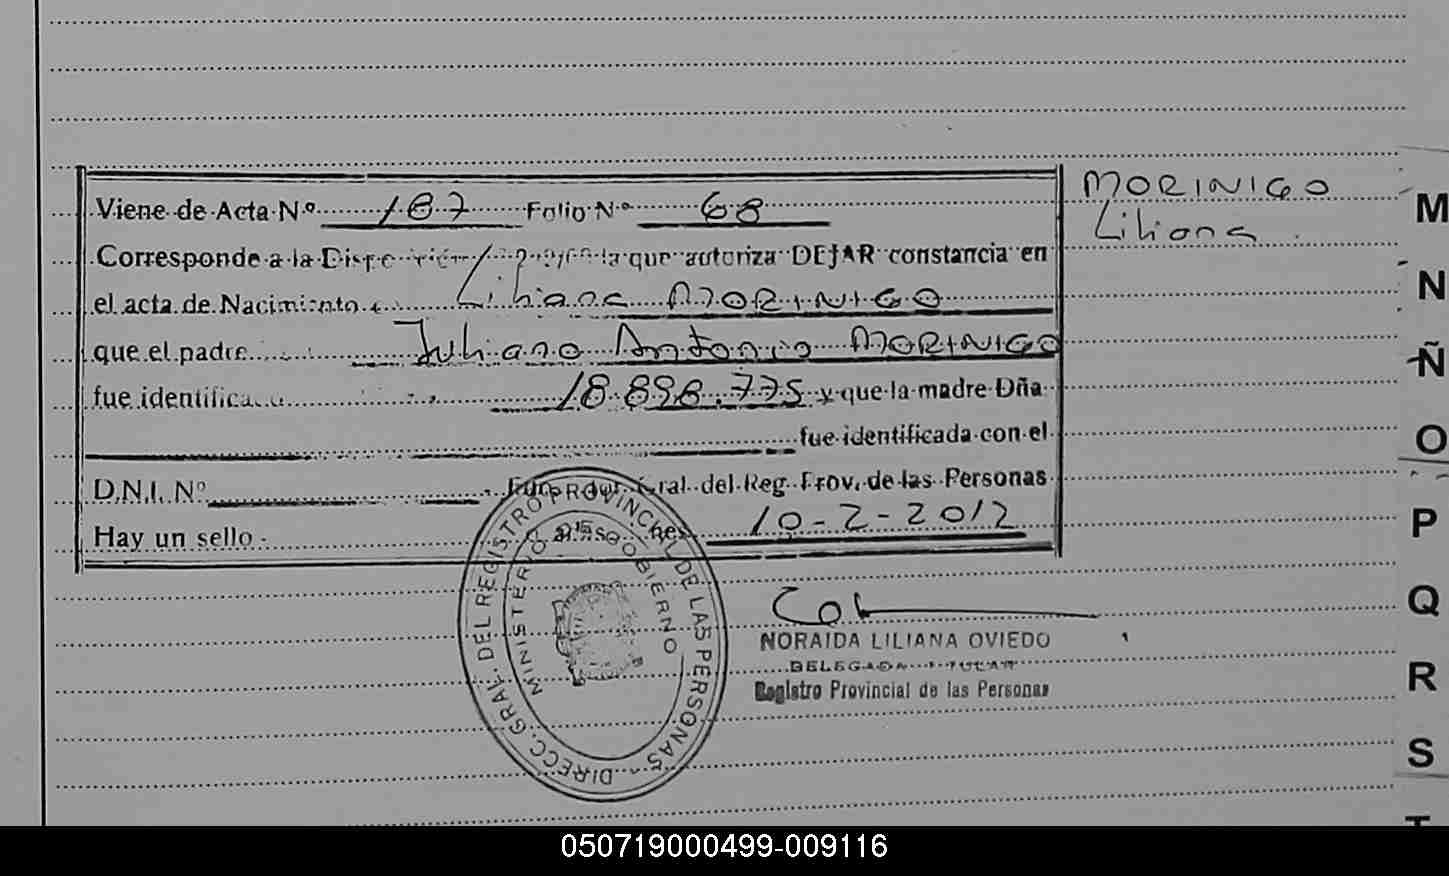 Viene de Acta Nº 187 Folio Nº 68
Corresponde a la la que autoriza DEJAR constancia en
el acta de Nacimiento Liliana MORINIGO
que el padre Juliano Antonio MORINIGO
fue 18.898.775 y que la madre Dña
fue identificada con el
D.N.I. Nº Gral. del Reg. Prov. de las Personas
Hay un sello. 10-2-2012
MORINIGO
Liliana
DIRECC. GRAL. DEL REGISTRO PROVINCIAL DE LAS PERSONAS
MINISTERIO GOBIERNO
NORAIDA LILIANA OVIEDO
DELEGADA
Registro Provincial de las Personas
M
N
Ñ
O
P
Q
R
S
T
050719000499-009116